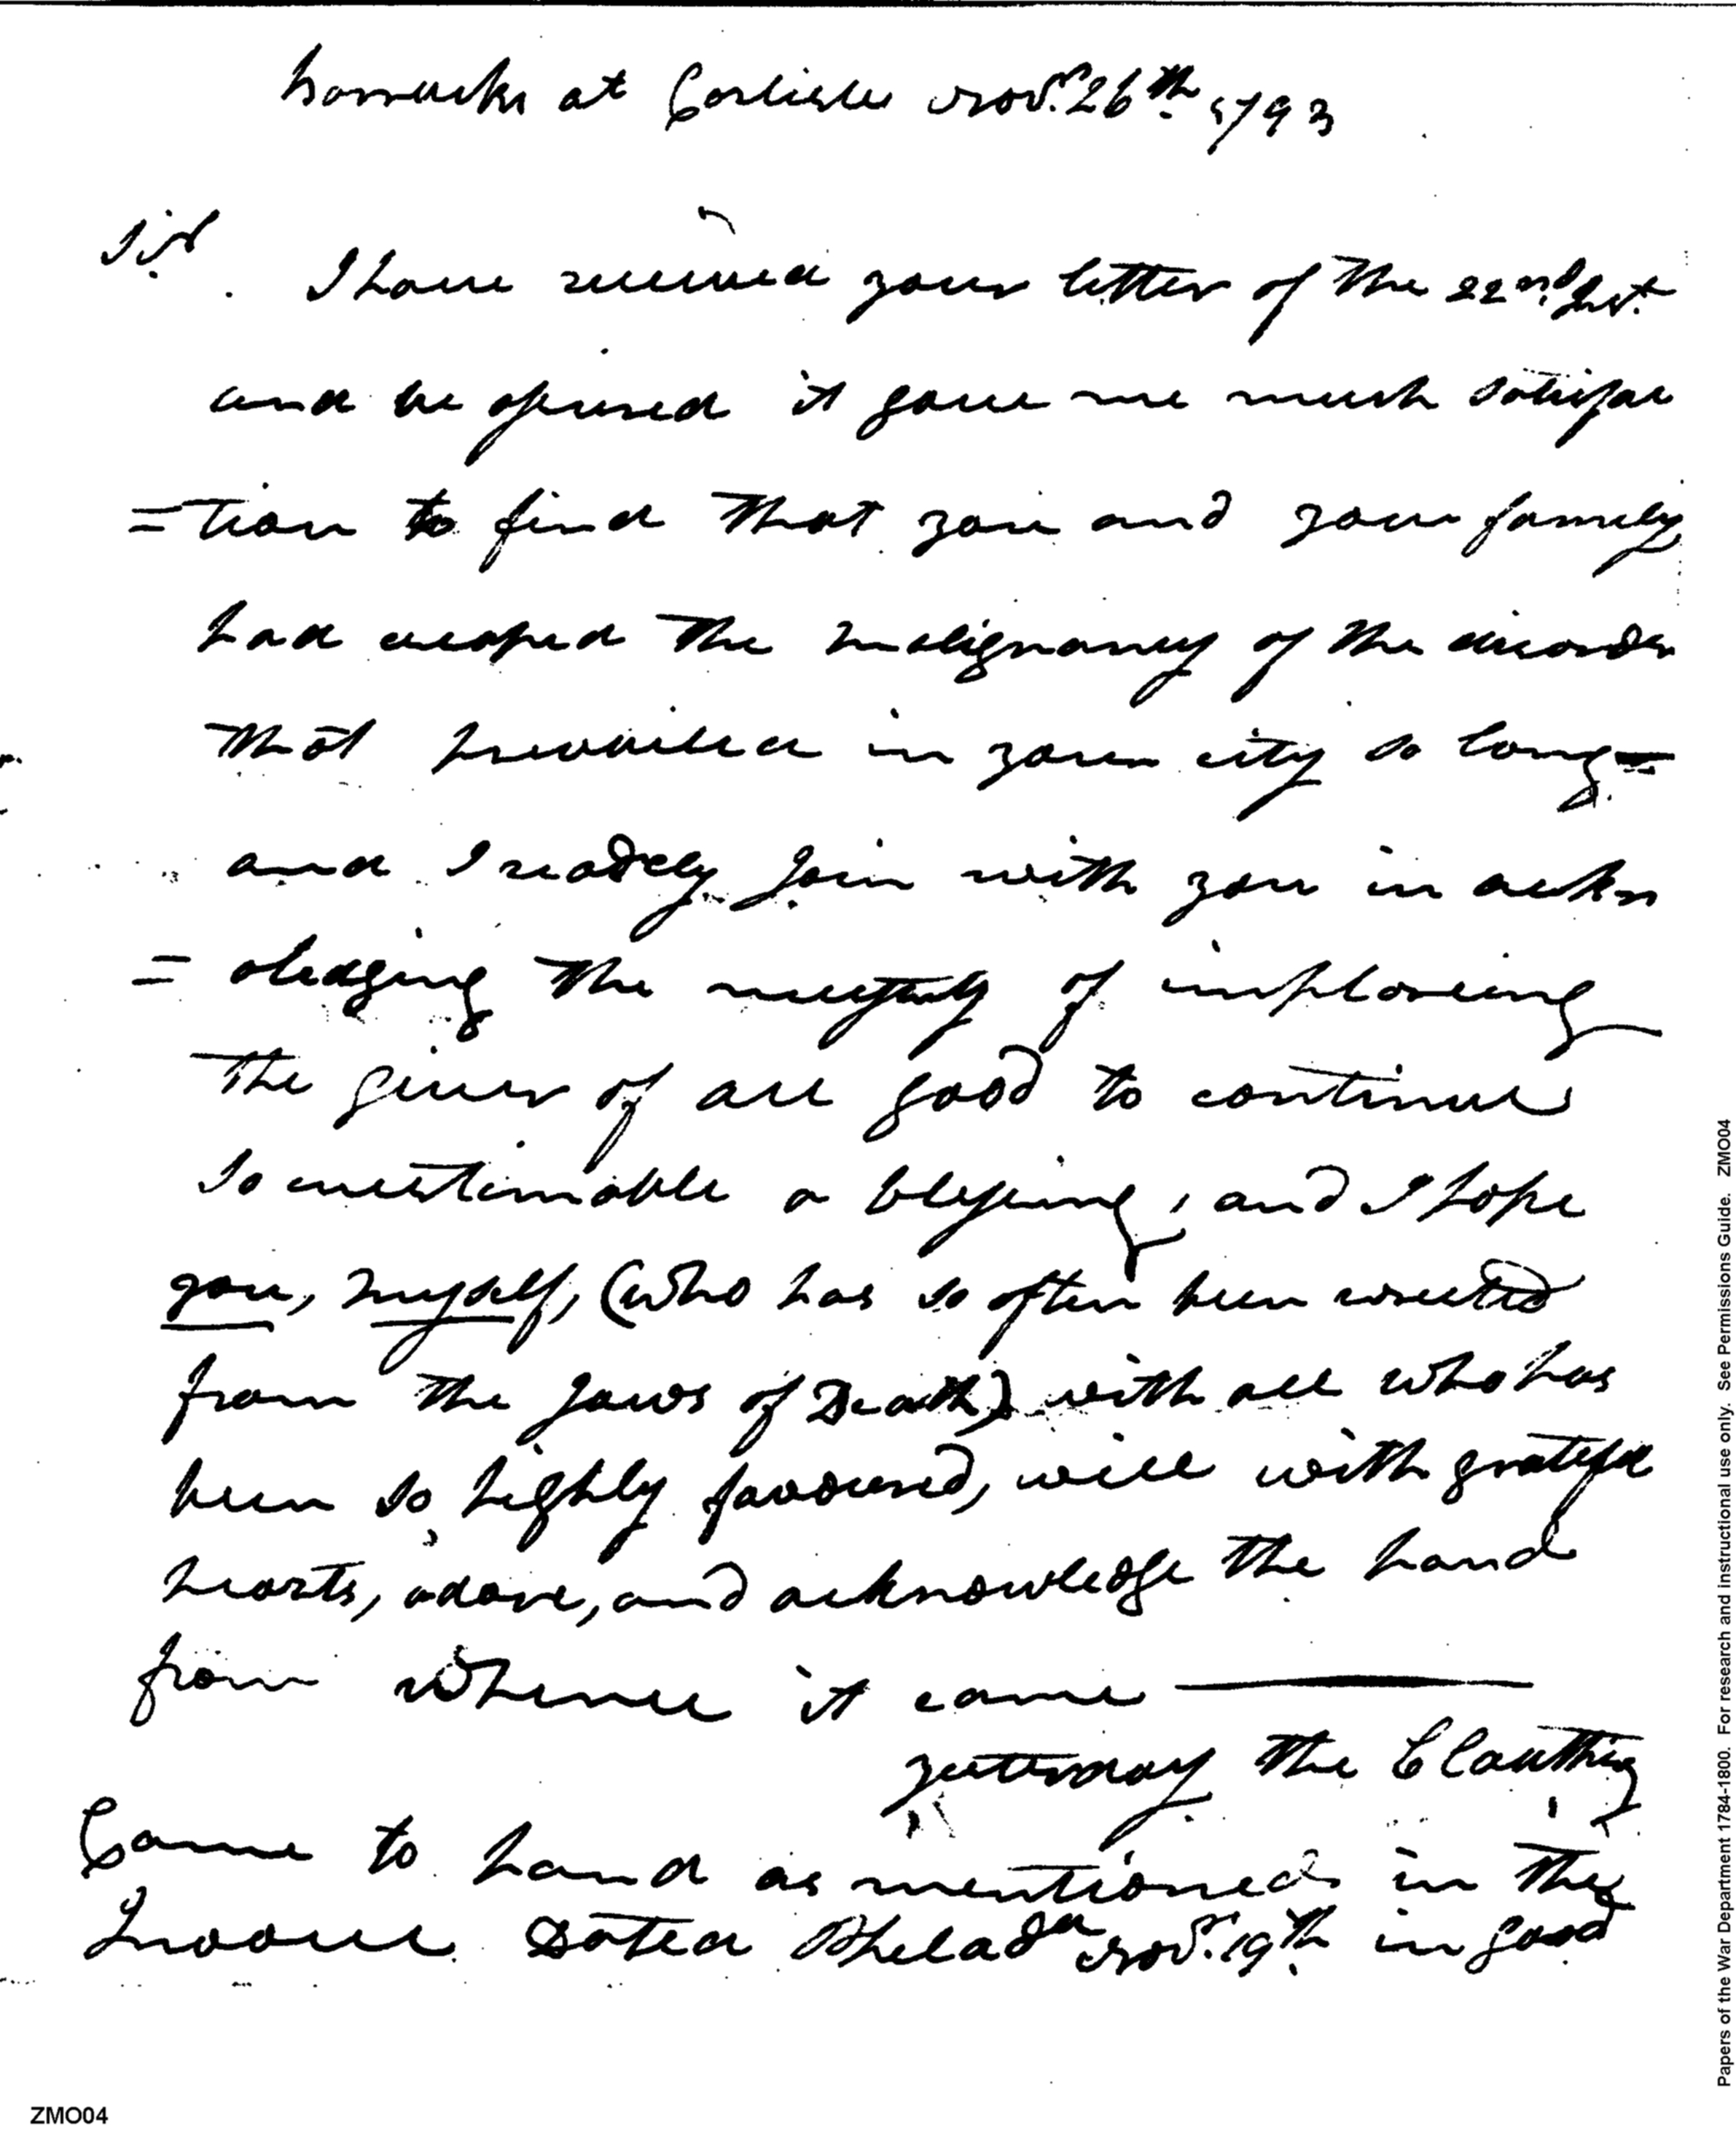 barracks at Carlisle Novr. 26th. 1793
Sir. I have received your letter of the 22nd. Inst.
and be assured it gave me much satisfac
=tion to find that you and your family
had escaped the malignancy of the disorder
that prevailed in your city so long—
and I readely join with you in ackn
=oledging the necessity of imploreing
the giver of all good to continue
so inestimable a blessing, and I hope
you, myself, (who has so often been wrested
from the Jaws of Death) with all who has
been so highly favoured, will with gratefull
hearts, adore, and acknowledge the hand
from whence it came ———
yesterday the Cloathing
Came to hand as mentioned in the
Invoice Dated Philada. Novr. 19th. in good
ZMO04
Papers of the War Department 1784-1800. For research and instructional use only. See Permissions Guide. ZMO04